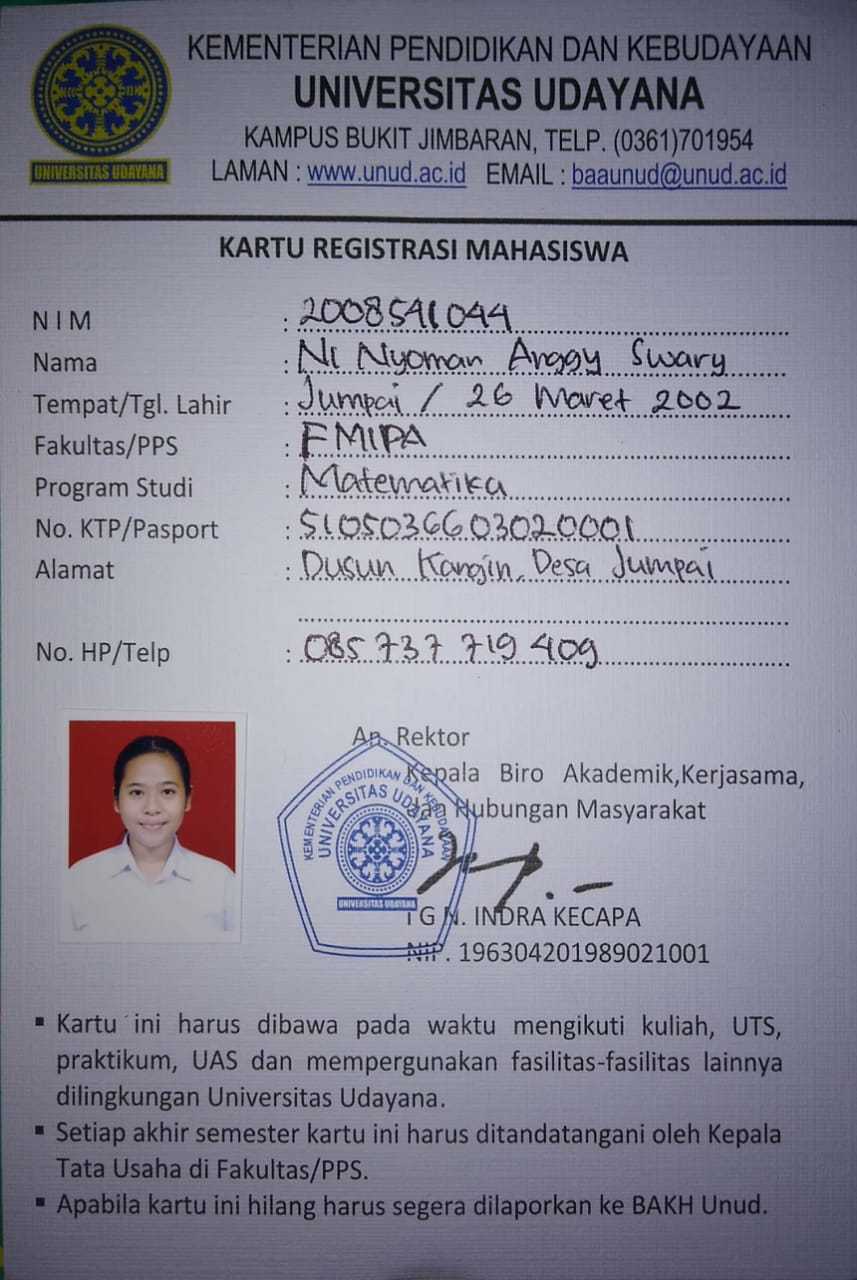 KEMENTERIAN PENDIDIKAN DAN KEBUDAYAAN
UNIVERSITAS UDAYANA
KAMPUS BUKIT JIMBARAN, TELP. (0361)701954
LAMAN : www.unud.ac.id EMAIL : baaunud@unud.ac.id
UNIVERSITAS UDAYANA
KARTU REGISTRASI MAHASISWA
N I M : 2008541044
Nama : Ni Nyoman Anggy Swary
Tempat/Tgl. Lahir : Jumpai / 26 Maret 2002
Fakultas/PPS : FMIPA
Program Studi : Matematika
No. KTP/Pasport : 5105036603020001
Alamat : Dusun Kangin, Desa Jumpai
No. HP/Telp : 085 737 719 409
An. Rektor
Kepala Biro Akademik,Kerjasama,
dan Hubungan Masyarakat
KEMENTERIAN PENDIDIKAN DAN KEBUDAYAAN
UNIVERSITAS UDAYANA
UNIVERSITAS UDAYANA
I G N. INDRA KECAPA
NIP. 196304201989021001
▪ Kartu ini harus dibawa pada waktu mengikuti kuliah, UTS,
praktikum, UAS dan mempergunakan fasilitas-fasilitas lainnya
dilingkungan Universitas Udayana.
▪ Setiap akhir semester kartu ini harus ditandatangani oleh Kepala
Tata Usaha di Fakultas/PPS.
▪ Apabila kartu ini hilang harus segera dilaporkan ke BAKH Unud.